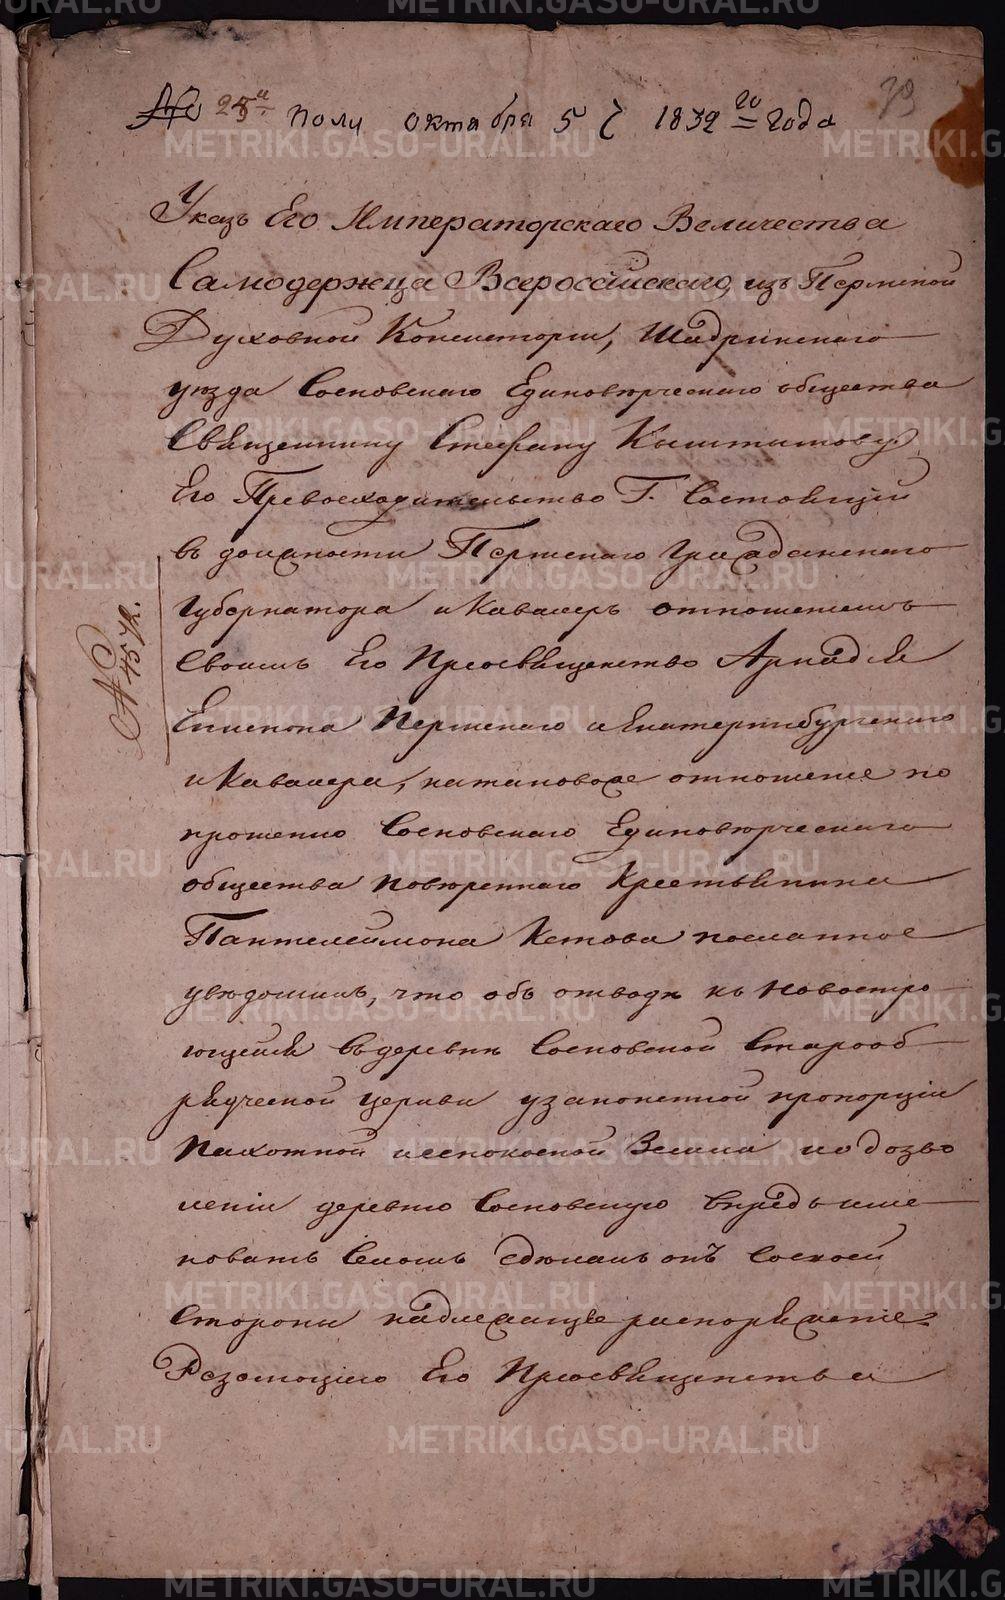 № 25й полу октября 5 ч 1832го года
79
Указъ Его Императорскаго Величества
Самодержца Всероссійскаго, изъ Пермской
Духовной Консисторіи, Шадринскаго
уезда Сосновскаго Единовѣрческаго общества
Священнику Стефану Кыштымову
Его Превосходительство Г. Состоящій
въ должности Пермскаго Гражданскаго
Губернатора и Кавалеръ отношеніемъ
Своимъ Его Преосвященство Аркадія
Епископа Пермскаго и Екатеринбургскаго
и Кавалера, на таковое отношеніе по
прошенію Сосновскаго Единовѣрческаго
общества повѣреннаго Крестьянина
Пантелеймона Кетова посланное
увѣдомилъ, что объ отводѣ къ новостро
ющейся въ деревнѣ Сосновской Старооб
рядческой церкви узаконенной пропорціи
Пахотной и сенокосной Земли и о дозво
леніи деревню Сосновскую впредь име
новать Селомъ сдѣлалъ онъ Съ своей
Стороны надлежащее распоряженіе.
Резолюціею Его Преосвященства
№ 4572.
METRIKI.GASO-URAL.RU